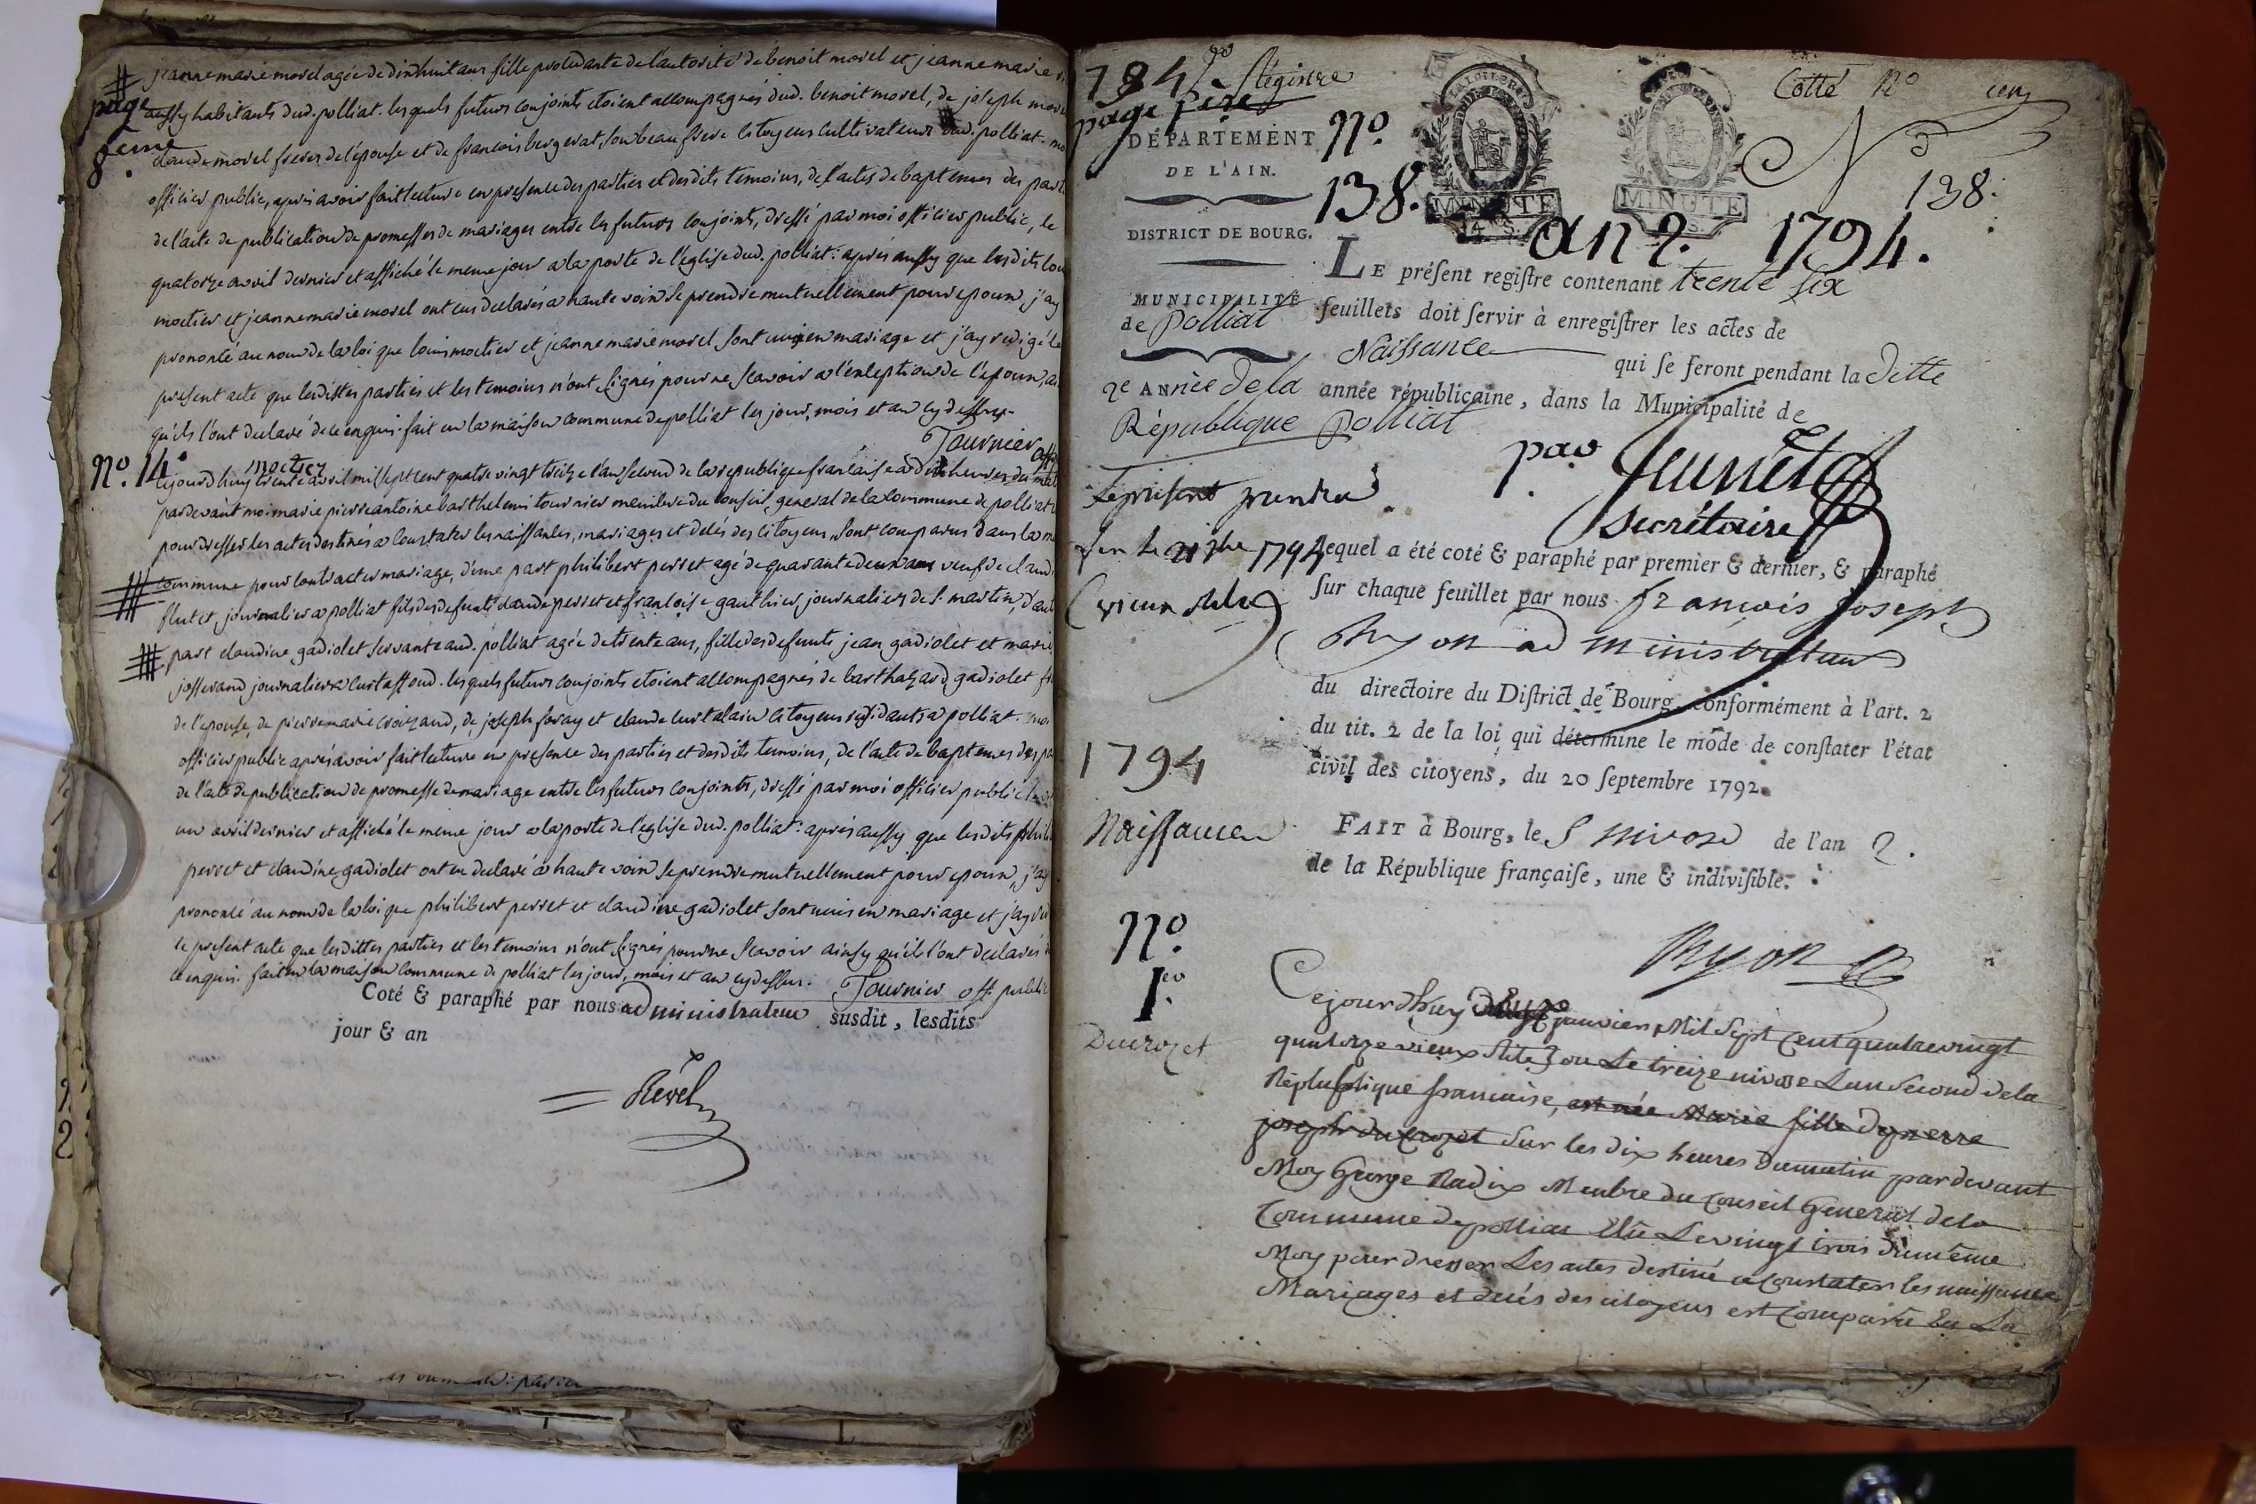 jeanne marie morel agée de dixhuit ans fille procedante de l'autorité de benoit morel et jeanne marie
page
8eme.
aussy habitants dud. polliat. lesquels futurs conjoints etoient accompagnés dud. benoit morel, de joseph morel
claude morel freres de l'épouse et de francois bergerat, son beau frere citoyens cultivateurs dud. polliat. moi
officier public, après avoir fait lecture en presence des parties et desdits temoins, de l'actes de baptemes des part
de l'acte de publication de promesses de mariages entre les futurs conjoints, dressé par moi officier public, le
quatorze avril dernier et affiché le meme jour a la porte de l'église dud. polliat: après aussy que lesdits loui
moctier et jeanne marie morel ont eus declarés a haute voix se prendre mutuellement pour epoux, j'ay
prononcé au nom de la loi que louis moctier et jeanne marie morel sont unis en mariage et j'ay redigé le
present acte que lesdittes parties et les temoins n'ont signés pour ne scavoir a l'exception de l'epoux, a
qu'ils l'ont declaré de ce enquis. fait en la maison commune de polliat les jour, mois et an cy dessus.
Tournier off
no. 14.
cejourdhuy trente avril mil sept cent quatre vingt treize l'an second de la republique francaise a dix heures du mat
pardevant moi marie pierre antoine barthelemi tournier membre du conseil general de la commune de polliat
pour dresser les actes destinés a constater les naissances, mariages et decés des citoyens sont comparus dans la m
commune pour contracter mariage, d'une part philibert perret agé de quarante deux ans veuf de claud
flutet, journalier a polliat fils des defunts claude perret et francoise gauthier, journaliers de st. martin, d'aut
part claudine gadiolet servante aud. polliat agée de trente ans, fille des defunts jean gadiolet et marie
josserand journaliers a curtafond. lesquels futurs conjoints etoient accompagnés de barthazard gadiolet fr
de l'epouse, de pierre marie croizand, de joseph foray et claude curtalain citoyens residants a polliat. moi
officier public après avoir fait lecture en presence des parties et desdits temoins, de l'acte de baptemes des pa
de l'acte de publication de promesse de mariage entre les futurs conjoints, dressé par moi officier public le
un avril dernier et affiché le meme jour a la porte de l'eglise dud. polliat: après aussy que lesdits phili
perret et claudine gadiolet ont eu declaré a haute voix se prendre mutuellement pour epoux, j'ay
prononcé au nom de la loi que philibert perret et claudine gadiolet sont unis en mariage et j'ay red
le present acte que lesdittes parties et les temoins n'ont signés pour ne scavoir ainsy qu'ils l'ont declarés
ce enquis. fait en la maison commune de polliat les jour, mois et an cy dessus. Tournier off. public
Coté & paraphé par nous administrateur susdit, lesdits
jour & an
Rével
1794
Régistre
page 1ere
Cotté No
No
138.
No
138.
MINUTE
MINUTE
an 2. 1794.
DÉPARTEMENT
DE L'AIN.
DISTRICT DE BOURG.
MUNICIPALITÉ
de Polliat
2e ANnée de la
République
LE préſent regiſtre contenant trente six
feuillets doit ſervir à enregiſtrer les actes de
Naissance qui ſe feront pendant la ditte
année républicaine, dans la Municipalité de
Polliat
par Jeunet
Secrétaire
Le présent
1794
vieux stile
lequel a été coté & paraphé par premier & dernier, & paraphé
ſur chaque feuillet par nous françois joseph
Ryon administrateur
du directoire du Diſtrict de Bourg, conformément à l'art. 2
du tit. 2 de la loi qui détermine le mode de conſtater l'état
civil des citoyens, du 20 ſeptembre 1792.
1794
Naissance
FAIT à Bourg, le 5 nivose de l'an 2.
de la République françaiſe, une & indiviſible.
Ryon
No.
1er.
Ducrozet
Cejourdhuy janvier Mil Sept Cent quatrevingt
quatorze vieux stile ou Le treize nivose Lan Second dela
République francaise, est née Marie fille de pierre
joseph ducrozet Sur les dix heures dumatin pardevant
Moy George Nadix Membre du Conseil General dela
Commune de polliat Elû Le vingt trois
Moy pour dresser Les actes destiné a Constater les naissances
Mariages et decés des citoyens est Comparu En La